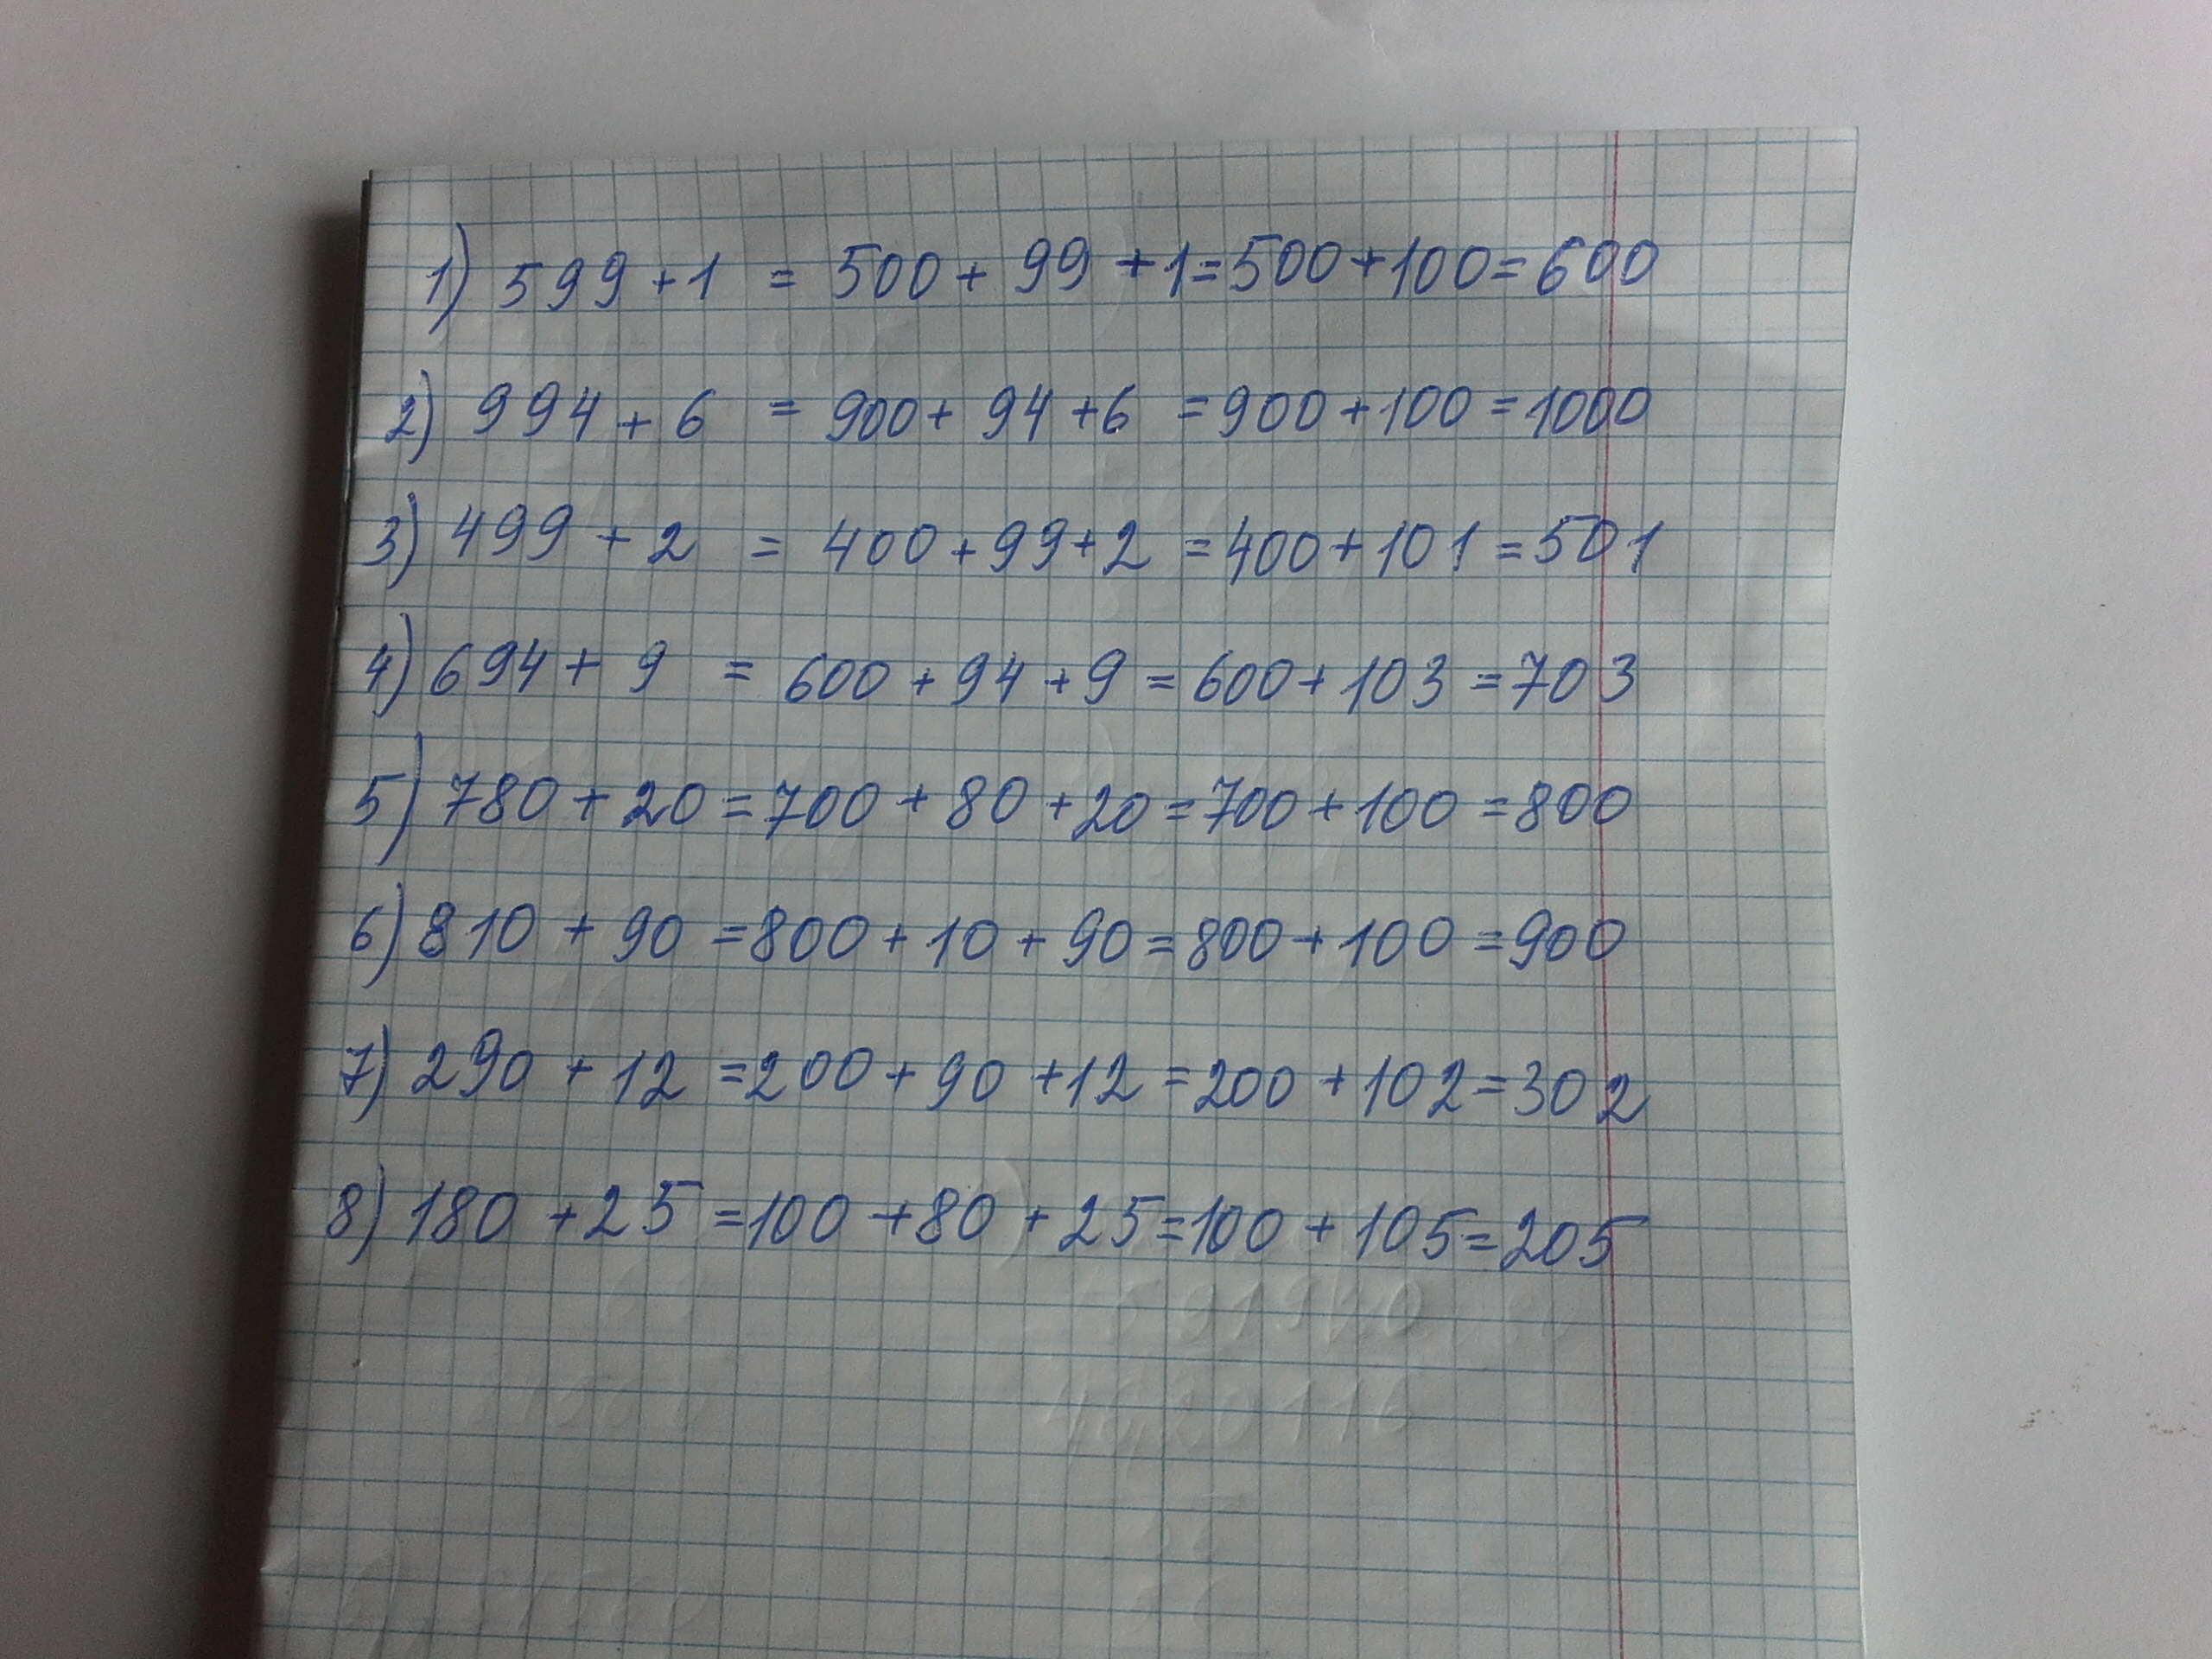 1) 599 + 1 = 500 + 99 + 1 = 500 + 100 = 600
2) 994 + 6 = 900 + 94 + 6 = 900 + 100 = 1000
3) 499 + 2 = 400 + 99 + 2 = 400 + 101 = 501
4) 694 + 9 = 600 + 94 + 9 = 600 + 103 = 703
5) 780 + 20 = 700 + 80 + 20 = 700 + 100 = 800
6) 810 + 90 = 800 + 10 + 90 = 800 + 100 = 900
7) 290 + 12 = 200 + 90 + 12 = 200 + 102 = 302
8) 180 + 25 = 100 + 80 + 25 = 100 + 105 = 205